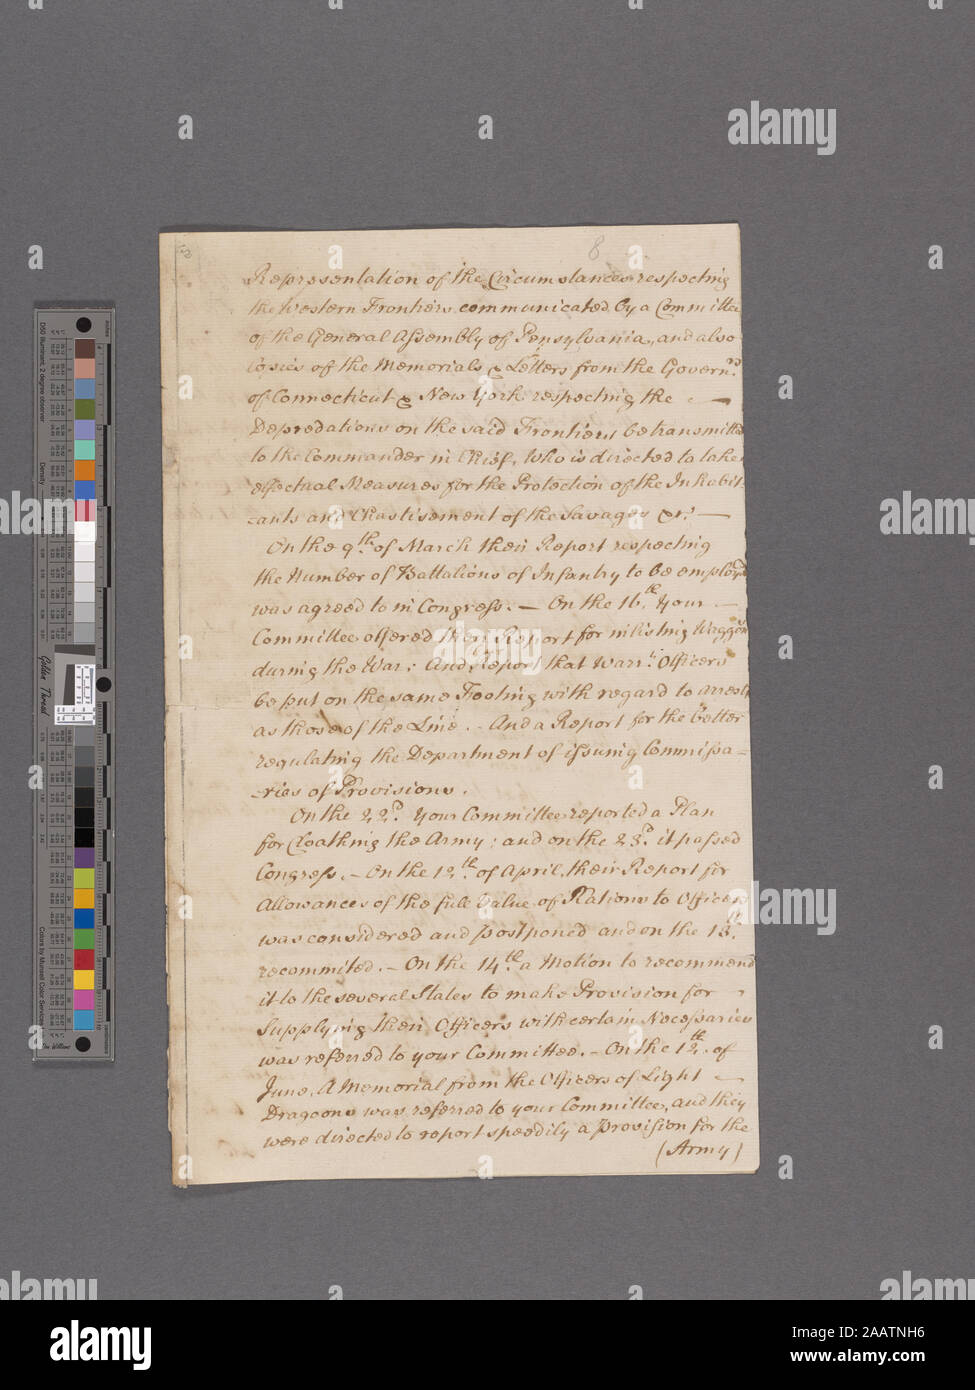 8
Representation of the Circumstances respecting
the Western Frontiers communicated by a Committee
of the General Assembly of Pensylvania, and also
Copies of the Memorials & Letters from the Govern.rs
of Connecticut & New York respecting the
Depredations on the said Frontiers be transmitted
to the Commander in Chief, Who is directed to take
effectual Measures for the Protection of the Inhabit-
-ants and Chastisement of the Savages &c.a —
On the 9.th of March their Report respecting
the Number of Battalions of Infantry to be employed
was agreed to in Congress. — On the 16.th Your —
Committee offered their Report for inlisting Waggon.rs
during the War: And Report that Warr.t Officers
be put on the same Footing with regard to arrests
as those of the Line. - And a Report for the better
regulating the Department of issuing Commissa-
-ries of Provisions.
On the 22.d Your Committee reported a Plan
for Cloathing the Army; and on the 23.d it passed
Congress. - On the 12.th of April, their Report for
Allowances of the full Value of Rations to Officers
was considered and postponed and on the 13.th
recommited. - On the 14.th a Motion to recommend
it to the several States to make Provision for
Supplying their Officers with certain Necessaries
was referred to your Committee. - On the 12.th of
June, A Memorial from the Officers of Light —
Dragoons was referred to your Committee, and they
were directed to report speedily a provision for the
(Army)
Golden Thread
alamy
Image ID: 2AATNH6
www.alamy.com